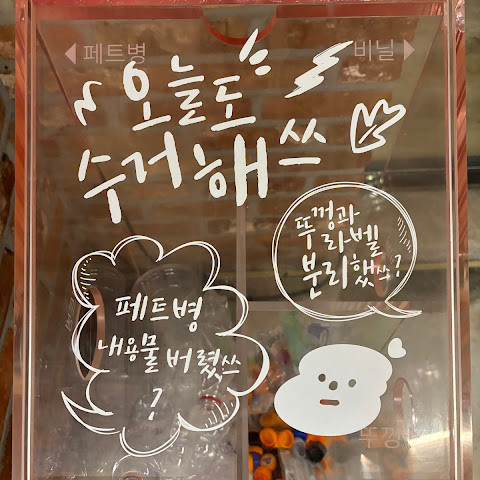 페트병
비닐
오늘도
수거해쓰
뚜껑과
라벨
분리했쓰?
페트병
내용물 버렸쓰
?
뚜껑